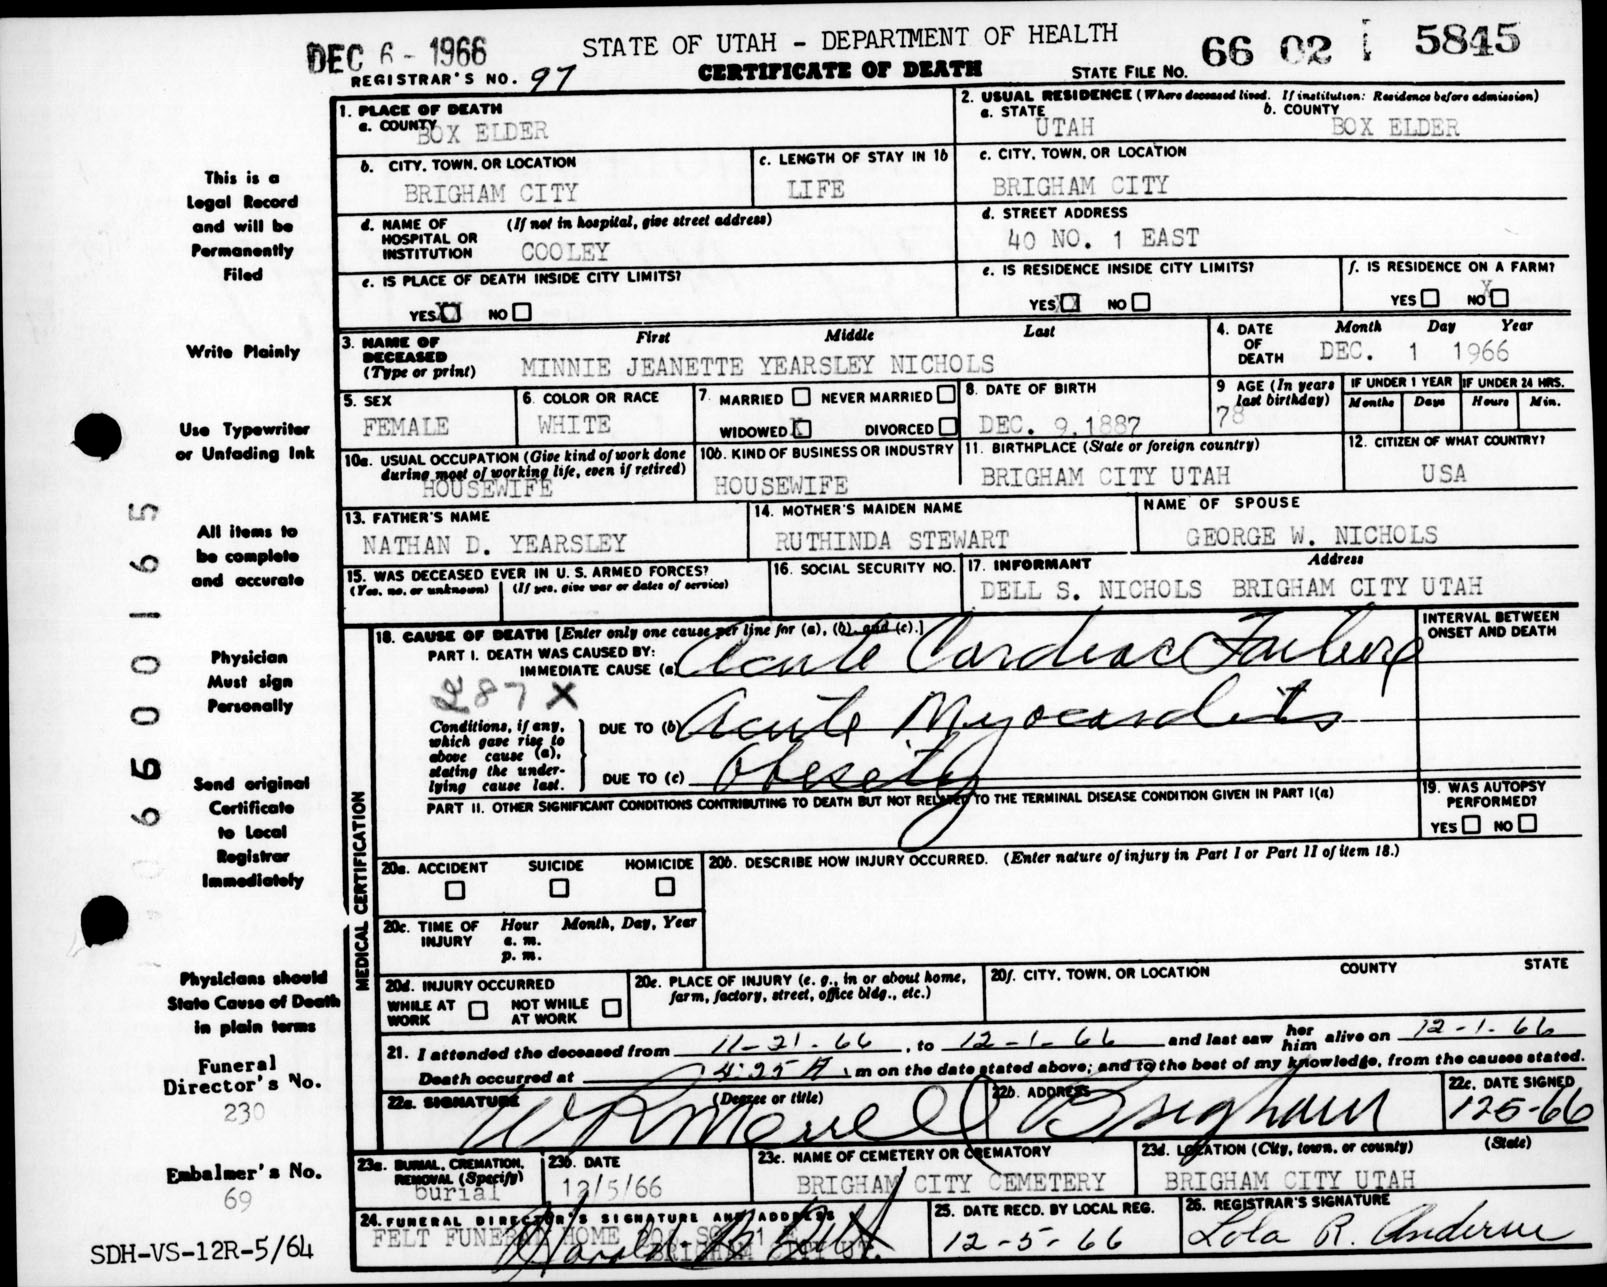 DEC 6 - 1966
STATE OF UTAH - DEPARTMENT OF HEALTH
66 02 5845
REGISTRAR'S NO. 97
CERTIFICATE OF DEATH
STATE FILE NO.
1. PLACE OF DEATH
a. COUNTY
BOX ELDER
2. USUAL RESIDENCE (Where deceased lived. If institution: Residence before admission)
a. STATE b. COUNTY
UTAH BOX ELDER
b. CITY, TOWN, OR LOCATION
BRIGHAM CITY
c. LENGTH OF STAY IN 1b
LIFE
c. CITY, TOWN, OR LOCATION
BRIGHAM CITY
d. NAME OF HOSPITAL OR INSTITUTION (If not in hospital, give street address)
COOLEY
d. STREET ADDRESS
40 NO. 1 EAST
e. IS PLACE OF DEATH INSIDE CITY LIMITS?
YES XX NO
e. IS RESIDENCE INSIDE CITY LIMITS?
YES XX NO
f. IS RESIDENCE ON A FARM?
YES NO X
3. NAME OF DECEASED (Type or print)
First Middle Last
MINNIE JEANETTE YEARSLEY NICHOLS
4. DATE OF DEATH Month Day Year
DEC. 1 1966
5. SEX
FEMALE
6. COLOR OR RACE
WHITE
7. MARRIED NEVER MARRIED
WIDOWED X DIVORCED
8. DATE OF BIRTH
DEC. 9,1887
9 AGE (In years last birthday)
78
IF UNDER 1 YEAR IF UNDER 24 HRS.
Months Days Hours Min.
10a. USUAL OCCUPATION (Give kind of work done during most of working life, even if retired)
HOUSEWIFE
10b. KIND OF BUSINESS OR INDUSTRY
HOUSEWIFE
11. BIRTHPLACE (State or foreign country)
BRIGHAM CITY UTAH
12. CITIZEN OF WHAT COUNTRY?
USA
13. FATHER'S NAME
NATHAN D. YEARSLEY
14. MOTHER'S MAIDEN NAME
RUTHINDA STEWART
NAME OF SPOUSE
GEORGE W. NICHOLS
15. WAS DECEASED EVER IN U. S. ARMED FORCES?
(Yes, no, or unknown) (If yes, give war or dates of service)
16. SOCIAL SECURITY NO.
17. INFORMANT Address
DELL S. NICHOLS BRIGHAM CITY UTAH
MEDICAL CERTIFICATION
18. CAUSE OF DEATH [Enter only one cause per line for (a), (b), and (c).]
INTERVAL BETWEEN ONSET AND DEATH
PART I. DEATH WAS CAUSED BY:
IMMEDIATE CAUSE (a) Acute Cardiac Failure
287 X
Conditions, if any, which gave rise to above cause (a), stating the underlying cause last.
DUE TO (b) Acute Myocarditis
DUE TO (c) Obesity
PART II. OTHER SIGNIFICANT CONDITIONS CONTRIBUTING TO DEATH BUT NOT RELATED TO THE TERMINAL DISEASE CONDITION GIVEN IN PART I(a)
19. WAS AUTOPSY PERFORMED?
YES NO
20a. ACCIDENT SUICIDE HOMICIDE
20b. DESCRIBE HOW INJURY OCCURRED. (Enter nature of injury in Part I or Part II of item 18.)
20c. TIME OF INJURY Hour Month, Day, Year
a. m.
p. m.
20d. INJURY OCCURRED
WHILE AT WORK NOT WHILE AT WORK
20e. PLACE OF INJURY (e. g., in or about home, farm, factory, street, office bldg., etc.)
20f. CITY, TOWN, OR LOCATION COUNTY STATE
21. I attended the deceased from 11-21-66, to 12-1-66 and last saw her him alive on 12-1-66
Death occurred at 4:25 A m on the date stated above; and to the best of my knowledge, from the causes stated.
22a. SIGNATURE (Degree or title)
W R Merrell
22b. ADDRESS
Brigham
22c. DATE SIGNED
12-5-66
23a. BURIAL, CREMATION, REMOVAL (Specify)
burial
23b. DATE
12/5/66
23c. NAME OF CEMETERY OR CREMATORY
BRIGHAM CITY CEMETERY
23d. LOCATION (City, town, or county) (State)
BRIGHAM CITY UTAH
24. FUNERAL DIRECTOR'S SIGNATURE AND ADDRESS
FELT FUNERAL HOME
BRIGHAM CITY UT.
Harold B. Felt
25. DATE RECD. BY LOCAL REG.
12-5-66
26. REGISTRAR'S SIGNATURE
Lola R. Andersen
This is a
Legal Record
and will be
Permanently
Filed
Write Plainly
Use Typewriter
or Unfading Ink
All items to
be complete
and accurate
Physician
Must sign
Personally
Send original
Certificate
to Local
Registrar
Immediately
Physicians should
State Cause of Death
in plain terms
Funeral
Director's No.
230
Embalmer's No.
69
SDH-VS-12R-5/64